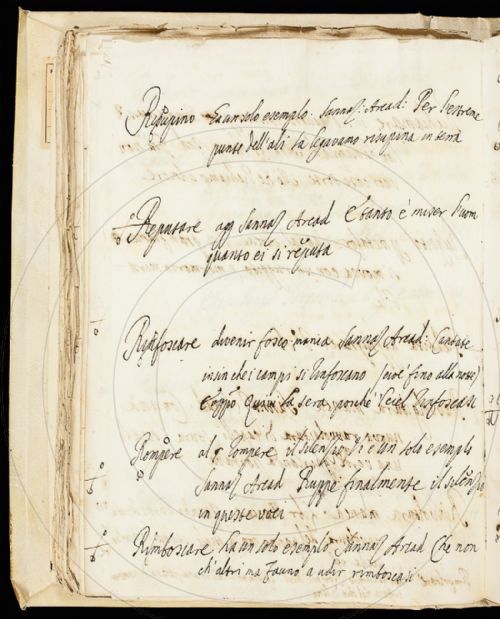 Risupino ha un solo esempio. Sannaz: Arcad: Per l'estreme
punte dell'ali la legavamo risupina in terra
Reputare agg Sannaz Arcad E tanto è miser l'uom
quanto ei si reputa
Rinfoscare divenir fosco manca Sannaz Arcad: Cantate
insin che i campi si rinfoscano (cioè fino alla notte)
e appo Quivi la sera poiche 'l ciel rinfoscasi
Rompere al § Rompere il silenzio vi è un solo esempio
Sannaz Arcad Ruppe finalmente il silenzio
in queste voci
Rimboscare ha un solo esempio Sannaz Arcad Che non
ch'altri ma Fauno a udir rimboscasi